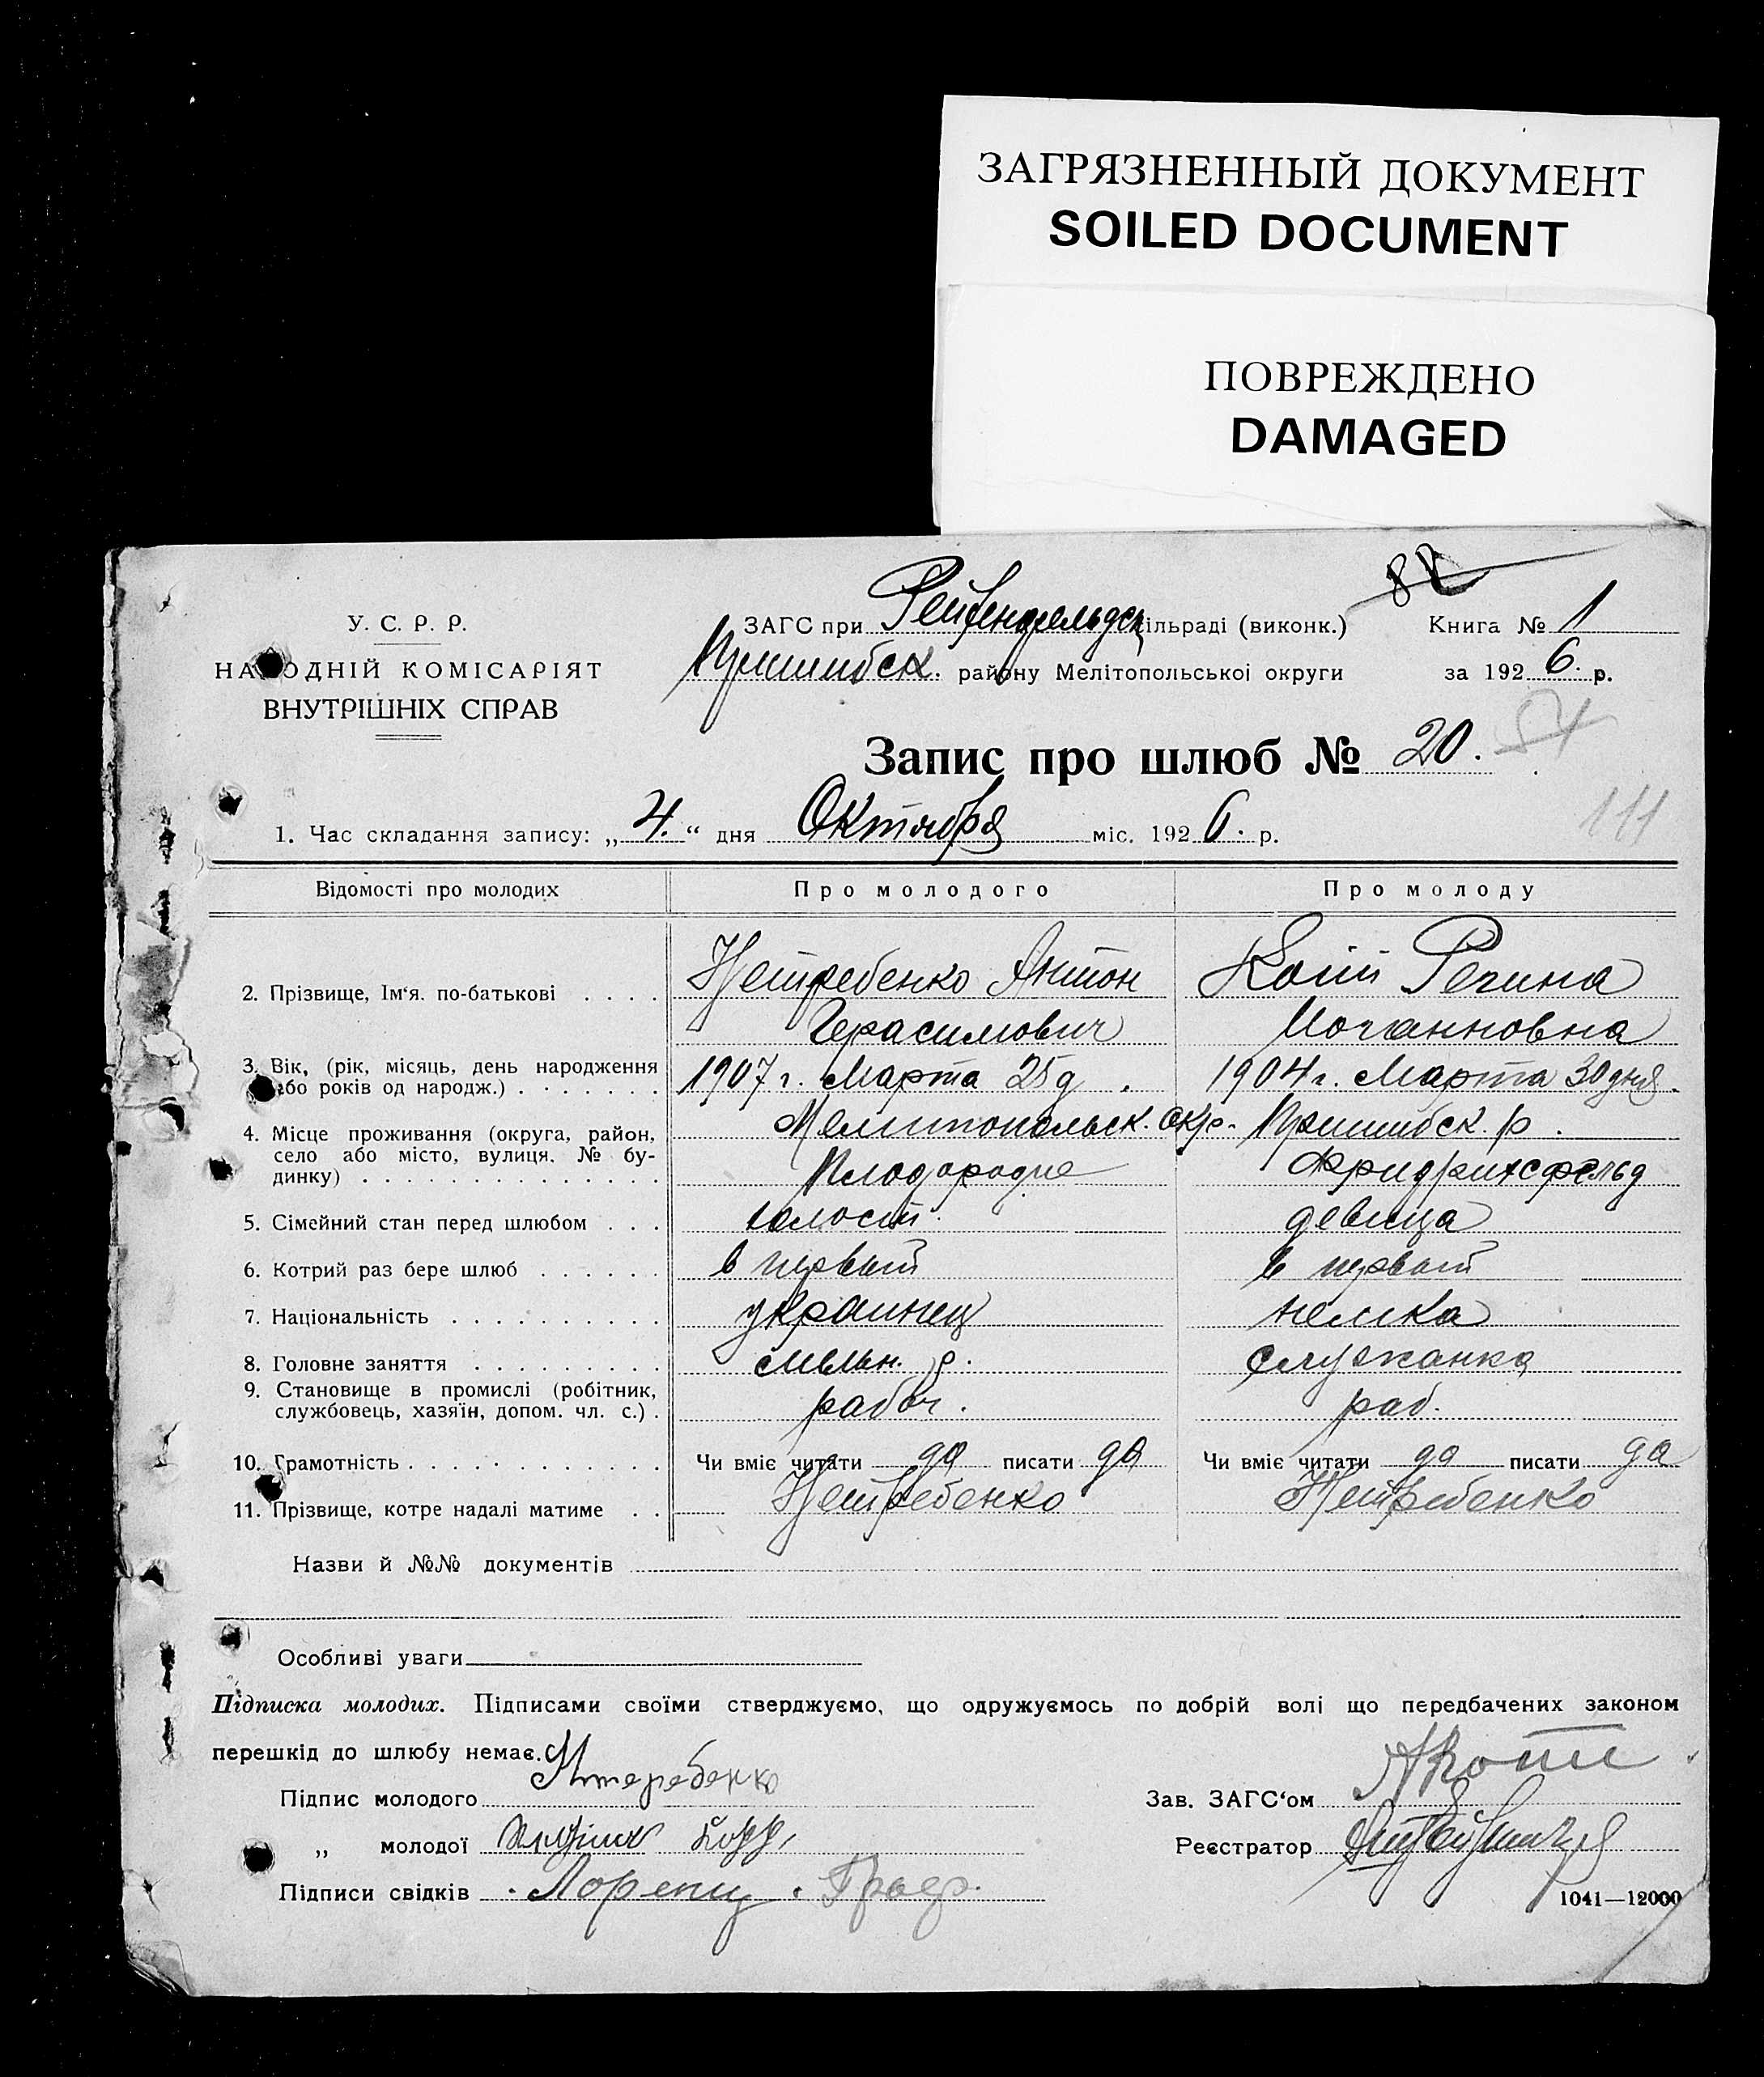 ЗАГРЯЗНЕННЫЙ ДОКУМЕНТ
SOILED DOCUMENT
ПОВРЕЖДЕНО
DAMAGED
82
У. С. Р. Р.
НАРОДНІЙ КОМІСАРІЯТ
ВНУТРІШНІХ СПРАВ
ЗАГС при Рейхенфельдск сільраді (виконк.) Книга № 1
Пришибск. району Мелітопольської округи за 1926. р.
Запис про шлюб № 20.
111
1. Час складання запису: „4.“ дня Октября міс. 1926. р.
Відомості про молодих Про молодого Про молоду
2. Прізвище, Ім‘я. по-батькові . . . . Нетребенко Антон Копп Регина
Герасимович Иоганновна
3. Вік, (рік, місяць, день народження 1907 г. Марта 25 д. 1904 г. Марта 30 дня.
або років од народж.) . . . . . . .
4. Місце проживання (округа, район, Мелитопольск. окр. Пришибск. р.
село або місто, вулиця, № бу-
динку) . . . . . . . . . . . . . . Плодородие Фридрихсфельд
5. Сімейний стан перед шлюбом . . . холост. девица
6. Котрий раз бере шлюб . . . . . . в первый в первый
7. Національність . . . . . . . . . . украинец немка
8. Головне заняття . . . . . . . . . р. служанка
9. Становище в промислі (робітник,
службовець, хазяїн, допом. чл. с.) . рабоч. раб.
10. Грамотність . . . . . . . . . . . . Чи вміє читати да писати да Чи вміє читати да писати да
11. Прізвище, котре надалі матиме . . Нетребенко Нетребенко
Назви й №№ документів
Особливі уваги
Підписка молодих. Підписами своїми стверджуємо, що одружуємось по добрій волі що передбачених законом
перешкід до шлюбу немає.
Підпис молодого Нтеребенко Зав. ЗАГС‘ом
„ молодої Реєстратор
Підписи свідків Лоренц.
1041—12000